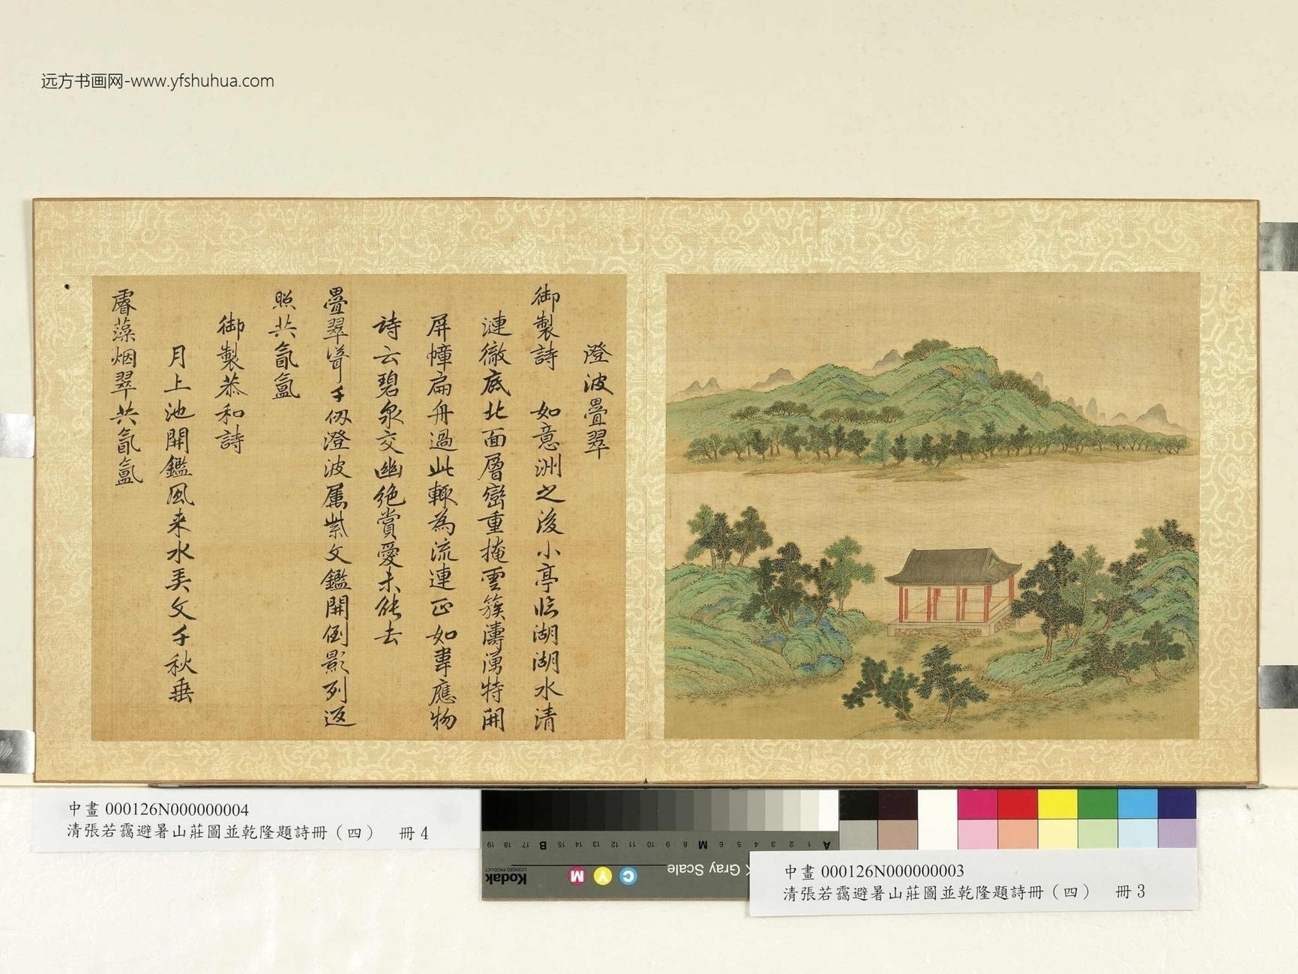 远方书画网-www.yfshuhua.com
澄波疊翠
御製詩 如意洲之後小亭臨湖湖水清
漣徹底北面層巒重掩雲簇濤湧特開
屏幛扁舟過此輒為流連正如韋應物
詩云碧泉交幽絶賞愛未能去
疊翠竒千仭澄波屬紫文鑑開倒影列返
照共氤氳
御製恭和詩
月上池開鑑風来水美文千秋垂
睿藻烟翠共氤氳
中畫 000126N000000004
清張若靄避暑山莊圖並乾隆題詩冊（四） 冊 4
19 18 17 B 15 14 13 12 11 10 9 8 M 6 5 4 3 2 1 A
Kodak
LICENSED PRODUCT
M Y C
Gray Scale
中畫 000126N000000003
清張若靄避暑山莊圖並乾隆題詩冊（四） 冊 3